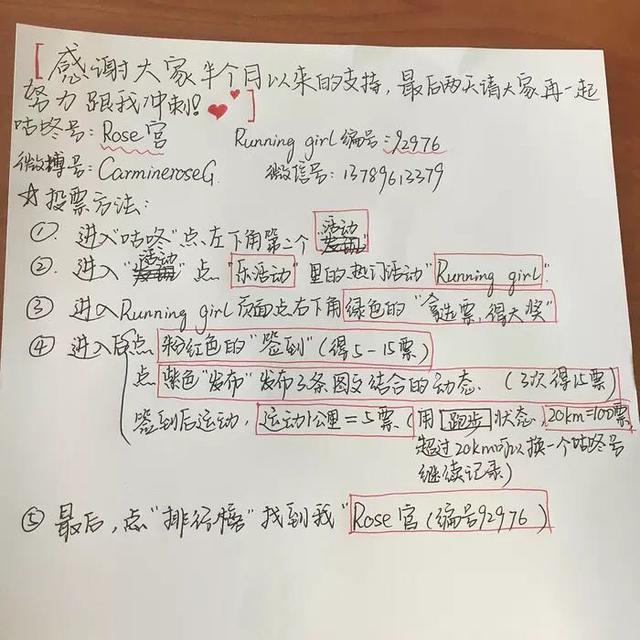 [感谢大家半个月以来的支持，最后两天请大家再一起
努力跟我冲刺！]
咕咚号：Rose宫 Running girl编号：92976
微博号：CarmineroseG. 微信号：13789613379
☆投票方法：
①. 进入"咕咚"点左下角第二个"活动"
②. 进入"活动"点"乐活动"里的热门活动"Running girl".
③ 进入Running girl页面点右下角绿色的"拿选票，得大奖"
④ 进入后点粉红色的"签到"(得5-15票)
点紫色"发布"发布3条图文结合的动态.（3次得15票）
签到后运动，运动1公里=5票.(用[跑步]状态，20km=100票
超过20km可以换一个咕咚号
继续记录)
⑤ 最后，点"排行榜"找到我"Rose宫(编号92976)